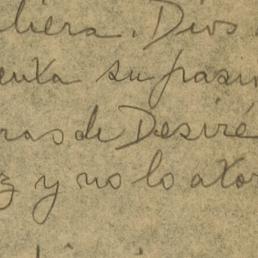 liera. Dios
enta su pasi
ras de Desiré
z y no lo ator